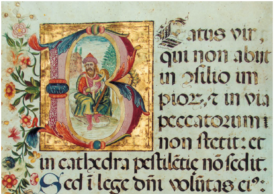 Beatus vir
qui non abiit
in ɔsilio im
pioꝝ, ⁊ in via
peccatorum
non stetit: et
in cathedra pestilētie nō sedit.
Sed ī lege dñi volūtas eiꝰ